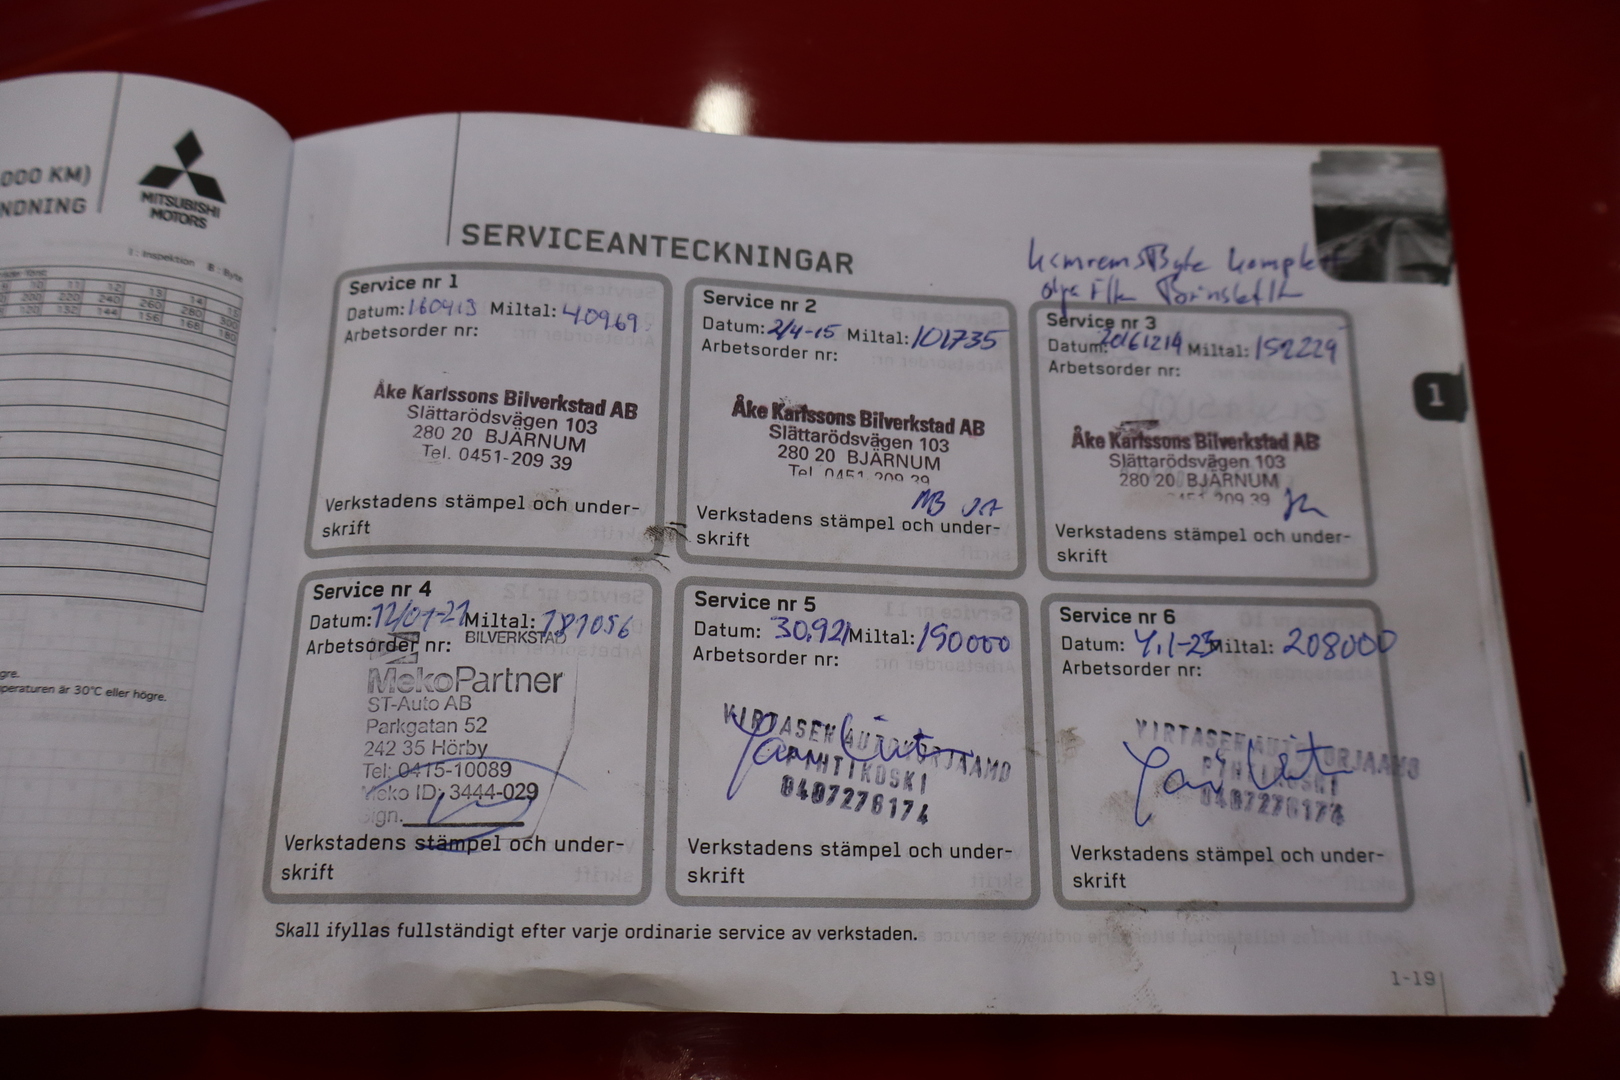 000 KM)
NDNING
MITSUBISHI
MOTORS
I : Inspektion B : Byte
10 11 12 13 14 15
200 220 240 260 280 300
120 132 144 156 168 180
gre.
peraturen är 30°C eller högre.
SERVICEANTECKNINGAR
Kamrems Byte Komplett
olja filt
Service nr 1
Datum: 160413 Miltal: 40969
Arbetsorder nr:
Åke Karlssons Bilverkstad AB
Slättarödsvägen 103
280 20 BJÄRNUM
Tel. 0451-209 39
Verkstadens stämpel och under-
skrift
Service nr 2
Datum: 2/4-15 Miltal: 101735
Arbetsorder nr:
Åke Karlssons Bilverkstad AB
Slättarödsvägen 103
280 20 BJÄRNUM
Tel 0451 209 39
Verkstadens stämpel och under-
skrift
Service nr 3
Datum: 20161214 Miltal: 152229
Arbetsorder nr:
Åke Karlssons Bilverkstad AB
Slättarödsvägen 103
280 20 BJÄRNUM
0451 209 39
Verkstadens stämpel och under-
skrift
1
Service nr 4
Datum: Miltal: 181056
Arbetsorder nr:
BILVERKSTAD
MekoPartner
ST-Auto AB
Parkgatan 52
242 35 Hörby
Tel: 0415-10089
Meko ID: 3444-029
Sign.
Verkstadens stämpel och under-
skrift
Service nr 5
Datum: 30.921 Miltal: 190000
Arbetsorder nr:
VIRTASEN AUTOKORJAAMO
PIHTIKOSKI
0407276174
Verkstadens stämpel och under-
skrift
Service nr 6
Datum: 4.1-23 Miltal: 208000
Arbetsorder nr:
VIRTASEN AUTOKORJAAMO
PIHTIKOSKI
0407276174
Verkstadens stämpel och under-
skrift
Skall ifyllas fullständigt efter varje ordinarie service av verkstaden.
1-19